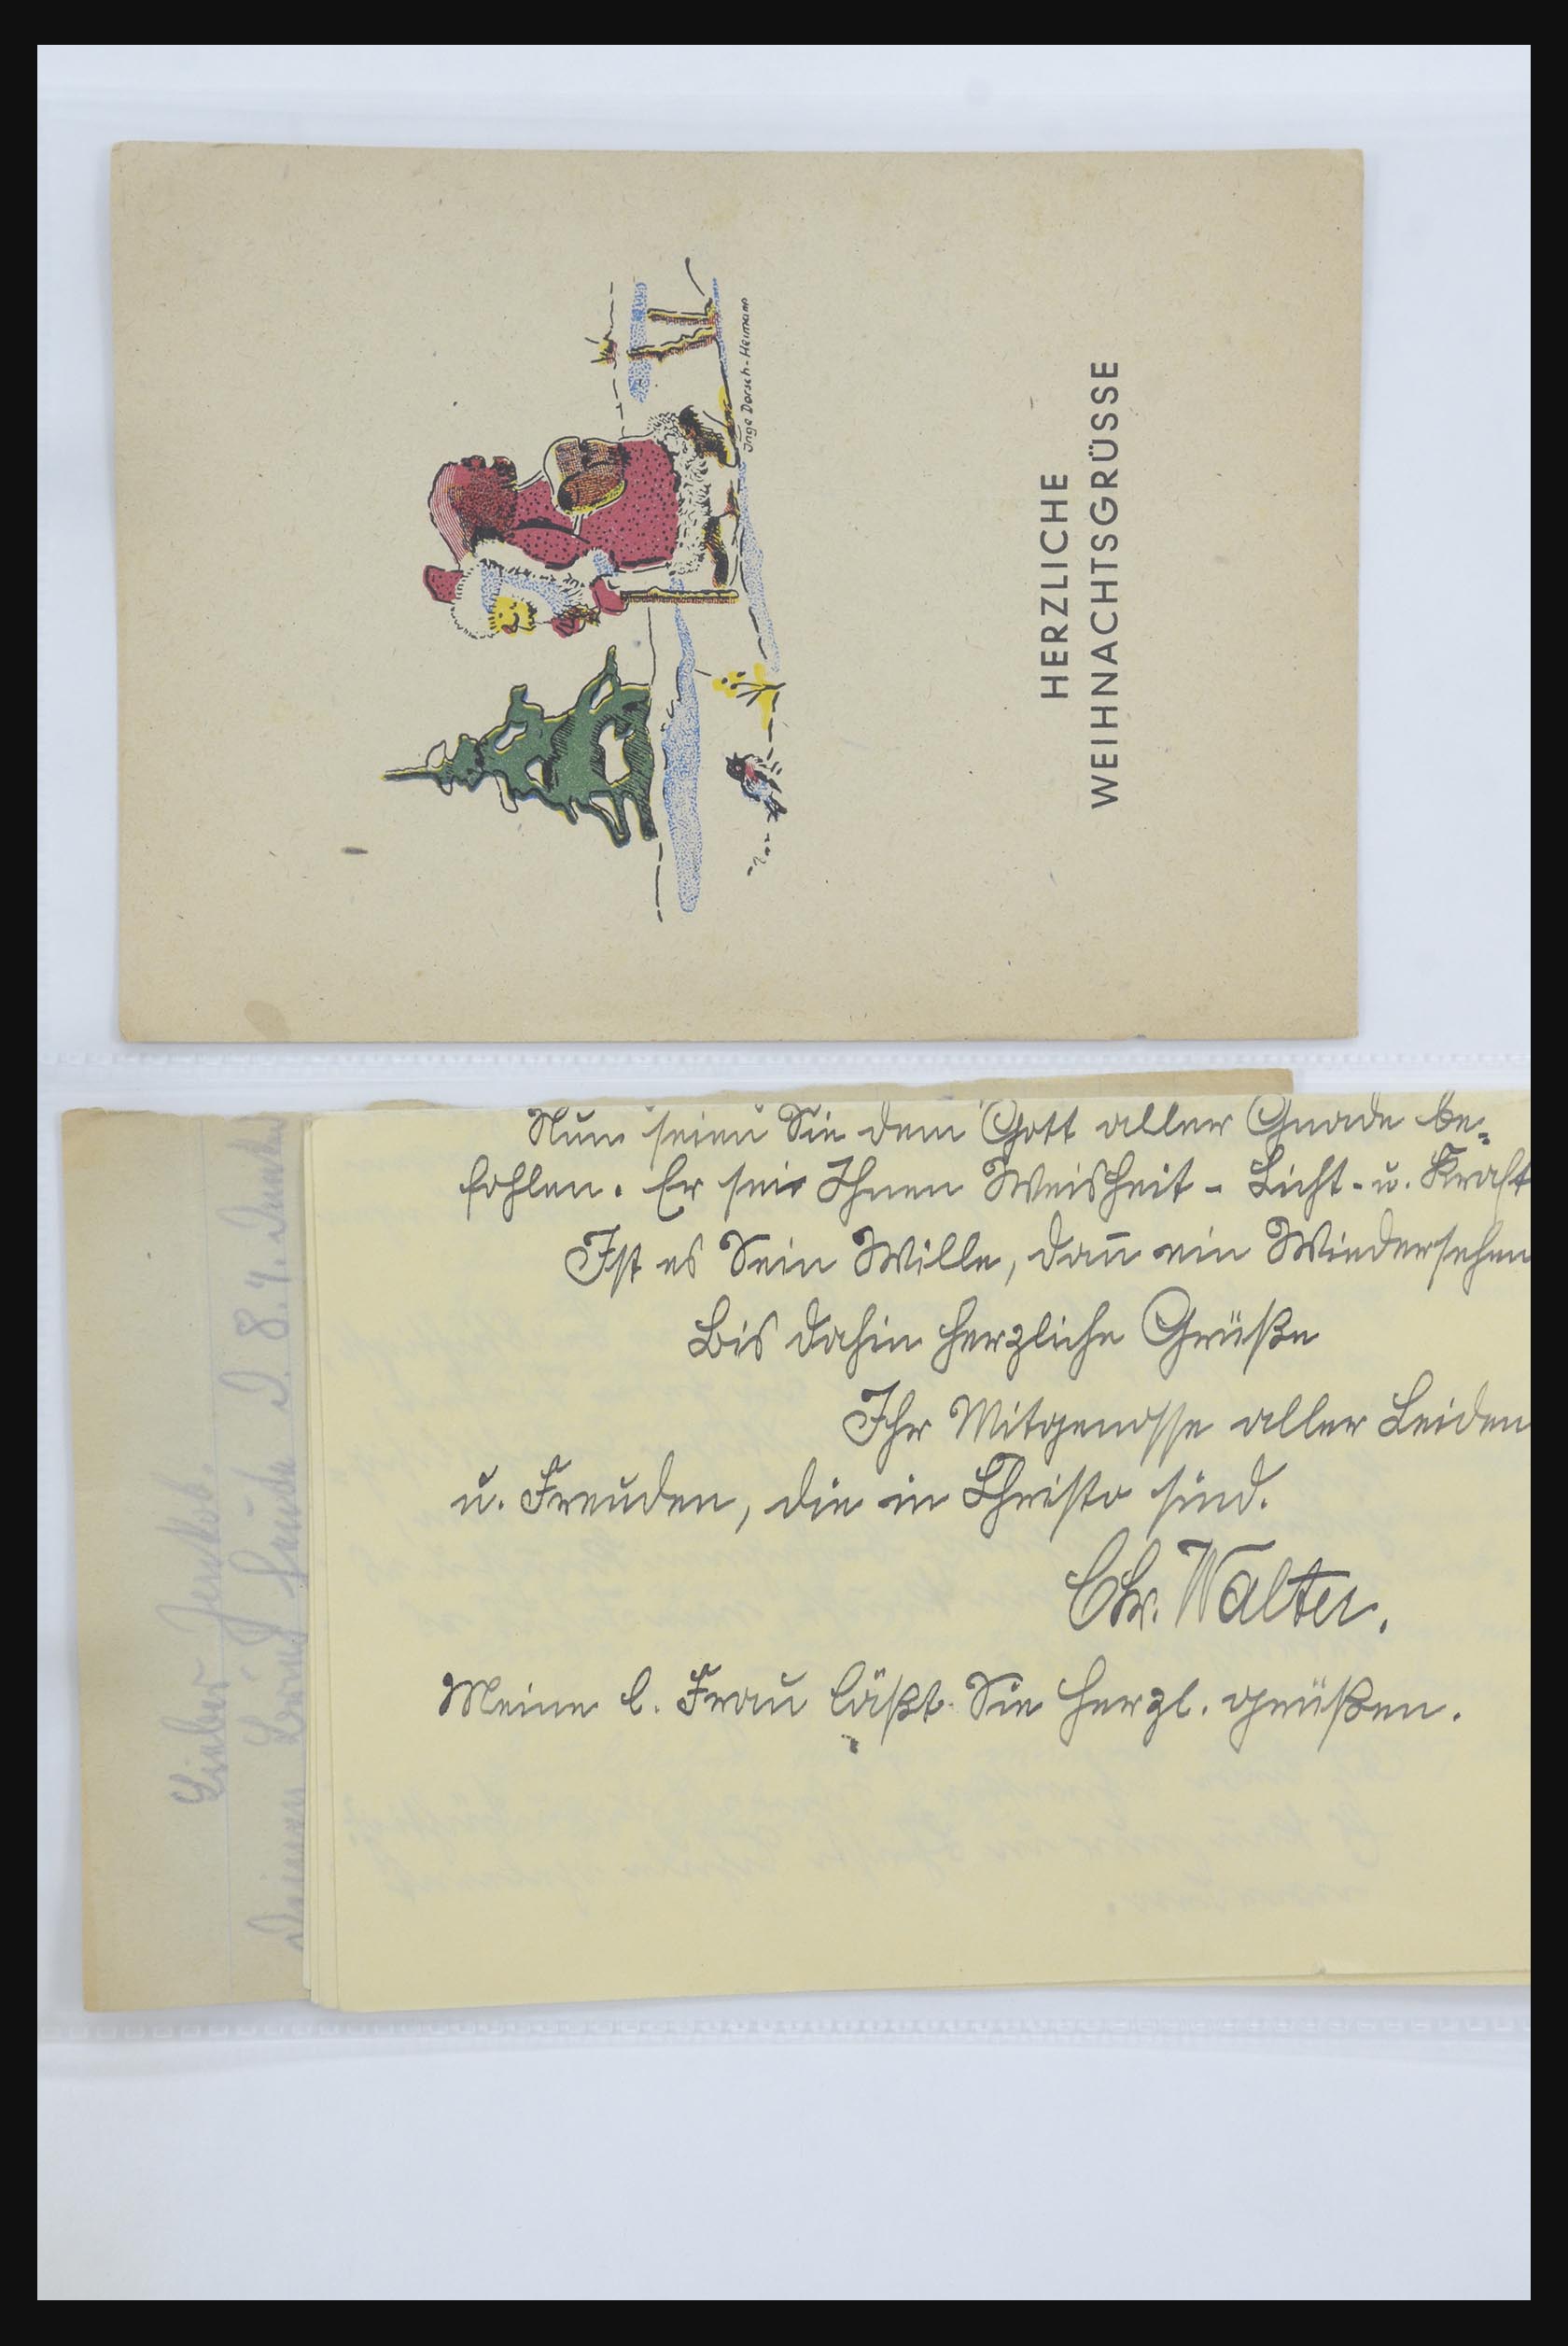 HERZLICHE
WEIHNACHTSGRÜSSE
Inge Dorsch-Heimann
Nun seien Sie dem Gott aller Gnade be=
fohlen. Er sei Ihnen Weisheit - Licht - u. Kraft
Ist es Sein Wille, dann ein Wiedersehen
Bis dahin herzliche Grüße
Ihr Mitgenosse aller Leiden
u. Freuden, die in Christo sind.
Chr. Walter.
Meine l. Frau läßt Sie herzl. grüßen.
Lieber
Deinen D. 8. 4.